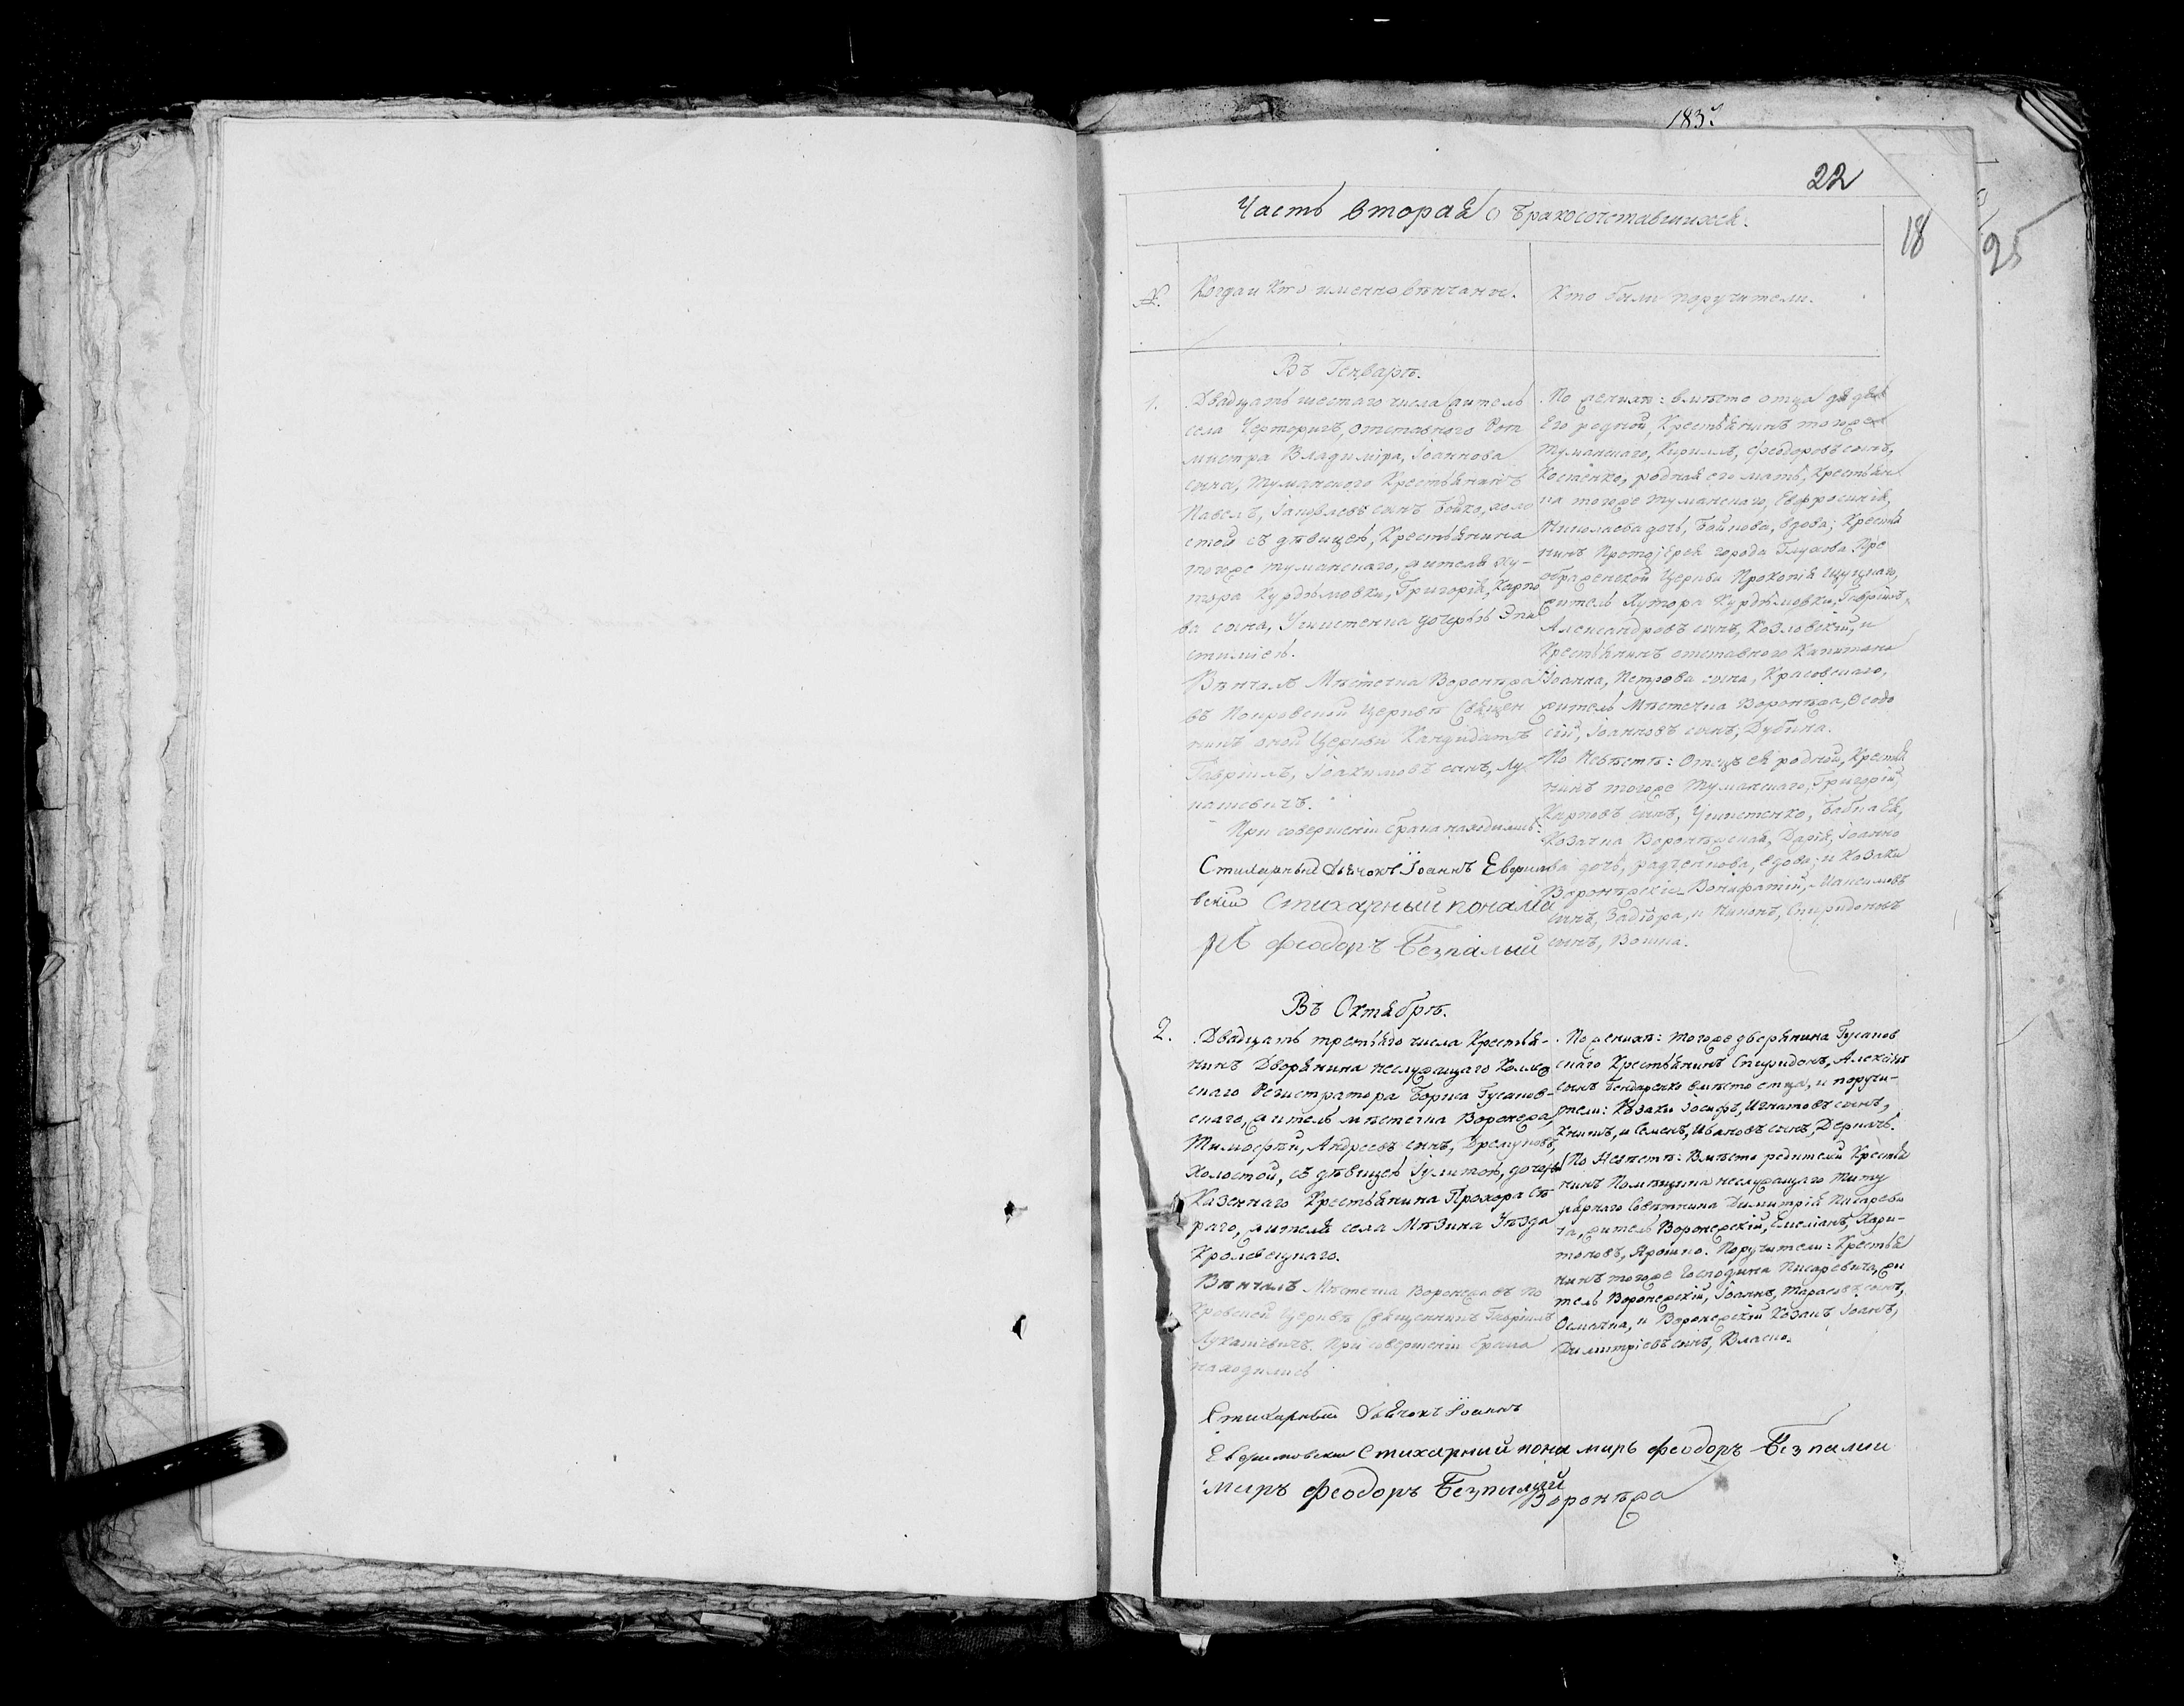 22
18
25
Часть вторая о бракосочетавшихся.
№.
Когда и кто именно вѣнчаны.
Кто были поручители.
Въ Генварѣ.
1.
Двадцать шестаго числа житель
села Черторигъ, отставного Рот
мистра Владиміра, Іоаннова
сына, Туманского Крестьянинъ
Павелъ, сынъ Бойко, холо
стой съ дѣвицею, Крестьянина
тогоже Туманскаго, жителя ху-
тора Курдѣмовки, Григорія, Карпо
ва сына, дочерью Эпи
стиміею.
Вѣнчалъ Мѣстечка Воронѣжа
въ Покровской Церквѣ Священ
никъ оной Церкви Кандидатъ
Гавріилъ, Іоакимовъ сынъ, Лу
кашевичъ.
При совершеніи брака находились:
Стихарный Дьячокъ Іоаннъ Ефимо
вскій Стихарный понама
рь Феодоръ Безпалый
По женихѣ: вмѣсто отца дядя
Его родной, Крестьянинъ тогоже
Туманскаго, Кириллъ, Феодоровъ сынъ,
Костенко, родная его мать, Крестьян
ка тогоже Туманского, Евфросинія,
Николаева дочь, Бойкова, вдова; Крестья
нинъ Протоіерея города Глухова Пре
ображенской Церкви Прокопія
житель Хутора Курдѣмовки, Гавріилъ,
Александровъ сынъ, Козловскій, и
Крестьянинъ отставного Капитана
Іоанна, Петрова сына, Красовскаго,
житель Мѣстечка Воронѣжа, Феодо
сій, Іоанновъ сынъ, Дубина.
По Невѣстѣ: Отецъ ея родной, Крестья
нинъ тогоже Туманскаго, Григорій,
Карповъ сынъ, бабка Ея,
Козачка Воронѣжская, Дарія, Іоанно
ва дочь, Радченкова, вдова; и Козаки
Воронѣжскіе Вонифатій, Максимовъ
сынъ, Задіора, и Никонъ, Спиридоновъ
сынъ, Воина.
Въ Октябрѣ.
2.
Двадцать третьяго числа Крестья-
нинъ Дворянина неслужащаго Колле
скаго Регистратора Бориса Гусаков-
скаго, житель мѣстечка Воронежа,
Тимофѣй, Андреевъ сынъ,
Холостой, съ дѣвицею Іулитою, дочерью
Казеннаго Крестьянина Прохора Сѣ
раго, жителя села Мѣзина Уѣзда
Кролевецкаго.
Вѣнчалъ Мѣстечка Воронежа въ По
кровской Церквѣ Священникъ Гавріилъ
Лукашевичъ. При совершеніи брака
находились
По женихѣ: тогоже дворянина Гусаков
скаго Крестьянинъ Спиридонъ, Алексіевъ
сынъ Бондаренко вмѣсто отца, и поручи-
тели: Козаки Іосифъ, Игнатовъ сынъ,
Книшъ, и Семенъ, Ивановъ сынъ, Деркачь.
По Невѣстѣ: Вмѣсто родителей Крестья
нинъ Помѣщика неслужащаго Титу
лярнаго Совѣтника Димитрія Писареви
ча, житель Воронежскій, Емеліанъ, Хари-
тоновъ, Ярошко. Поручители: Крестья
нинъ тогоже Господина Писаревича, жи
тель Воронежскій, Іоаннъ, Тарасовъ сынъ,
Осмачка, и Воронежскій Козакъ Іоаннъ,
Димитріевъ сынъ, Власко.
Стихарный Дьячокъ Іоаннъ
Ефимовскій Стихарний понамарь Феодоръ Безпалии
маръ Феодоръ Безпалый
Воронѣжа